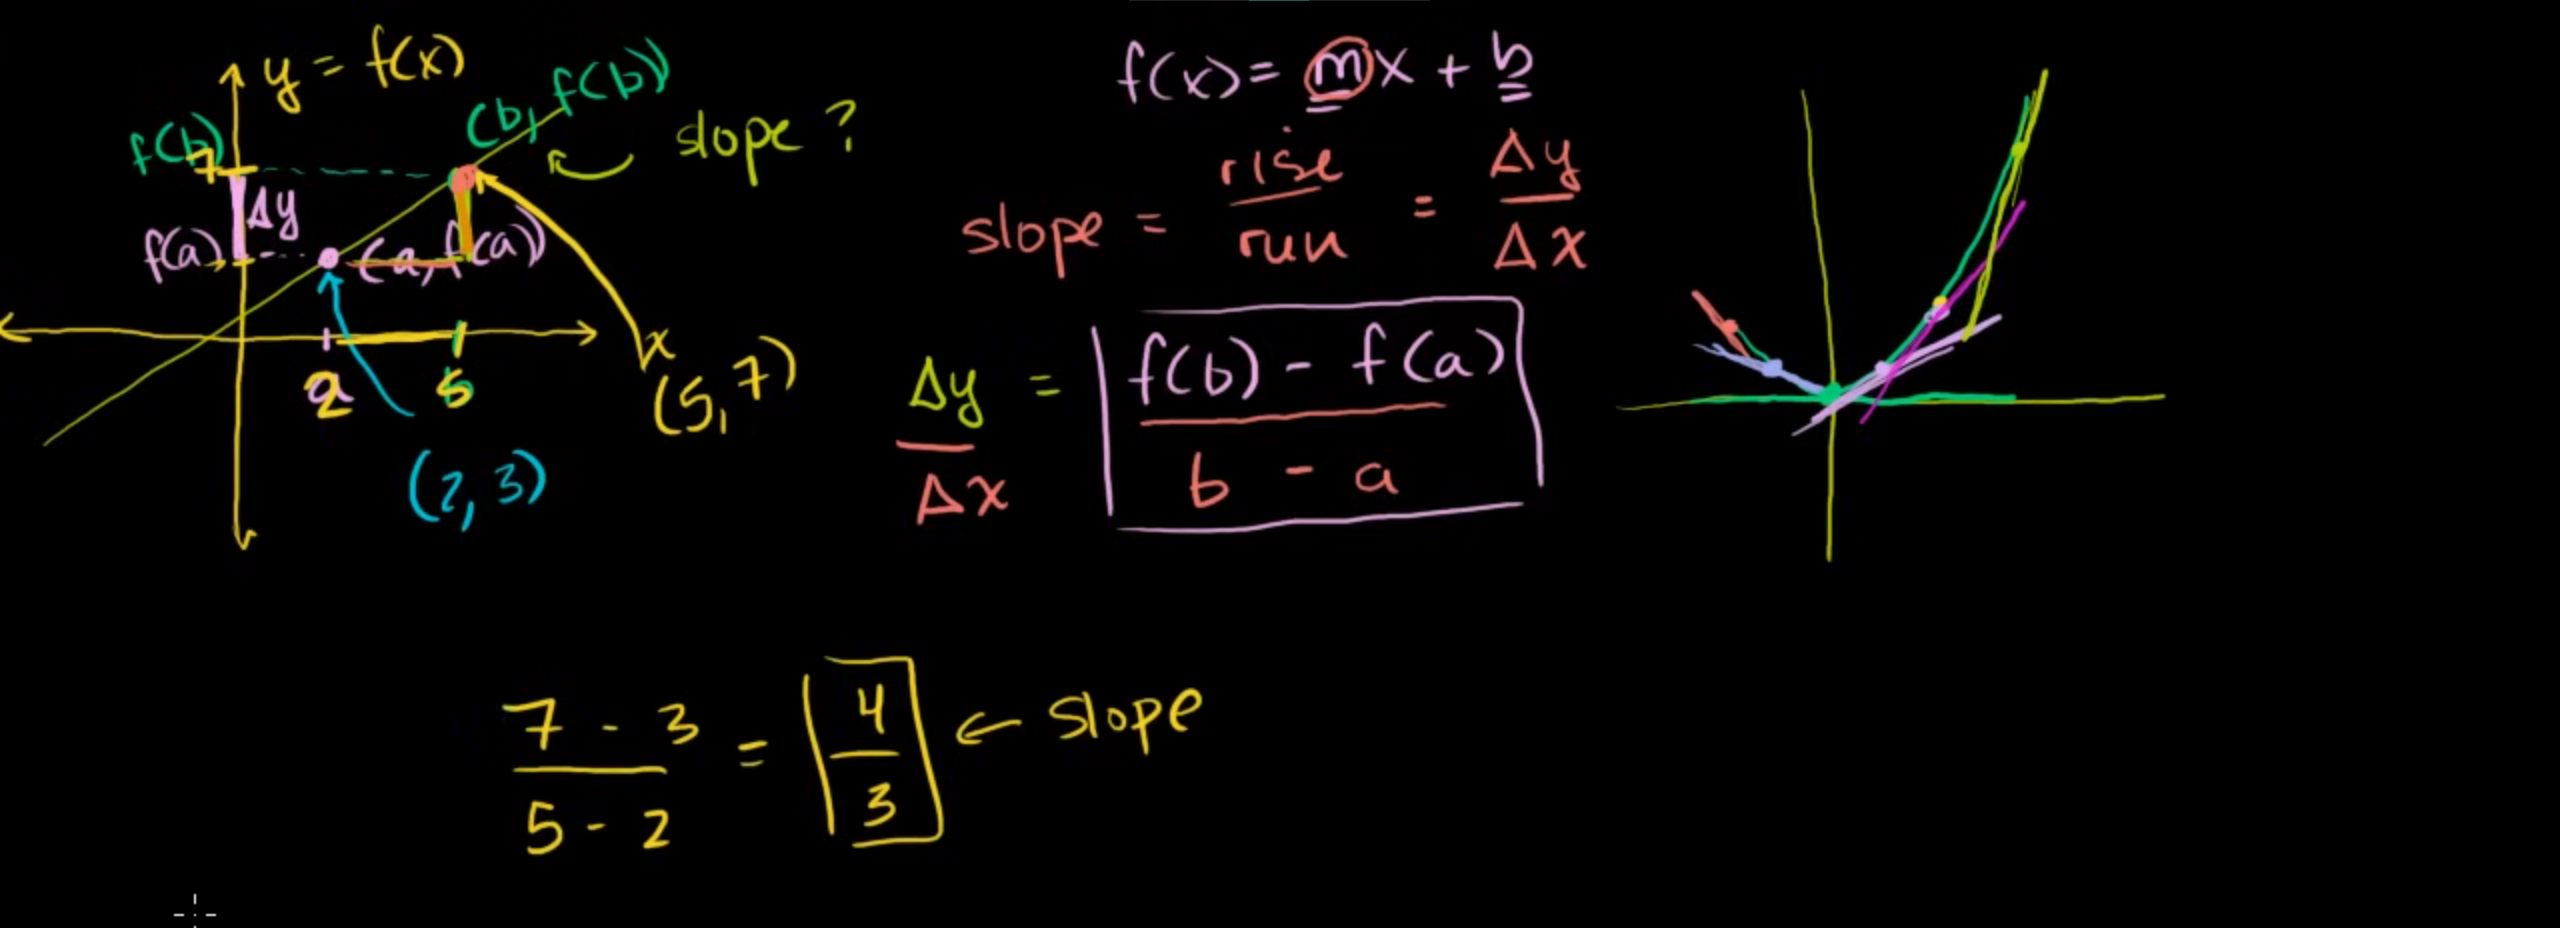 y = f(x)
f(b)
7
(b, f(b))
slope ?
Δy
f(a)
(a, f(a))
x
2
5
(5, 7)
(2, 3)
f(x) = mx + b
slope = rise / run = Δy / Δx
Δy / Δx = f(b) - f(a) / b - a
7 - 3 / 5 - 2 = 4 / 3 ← slope